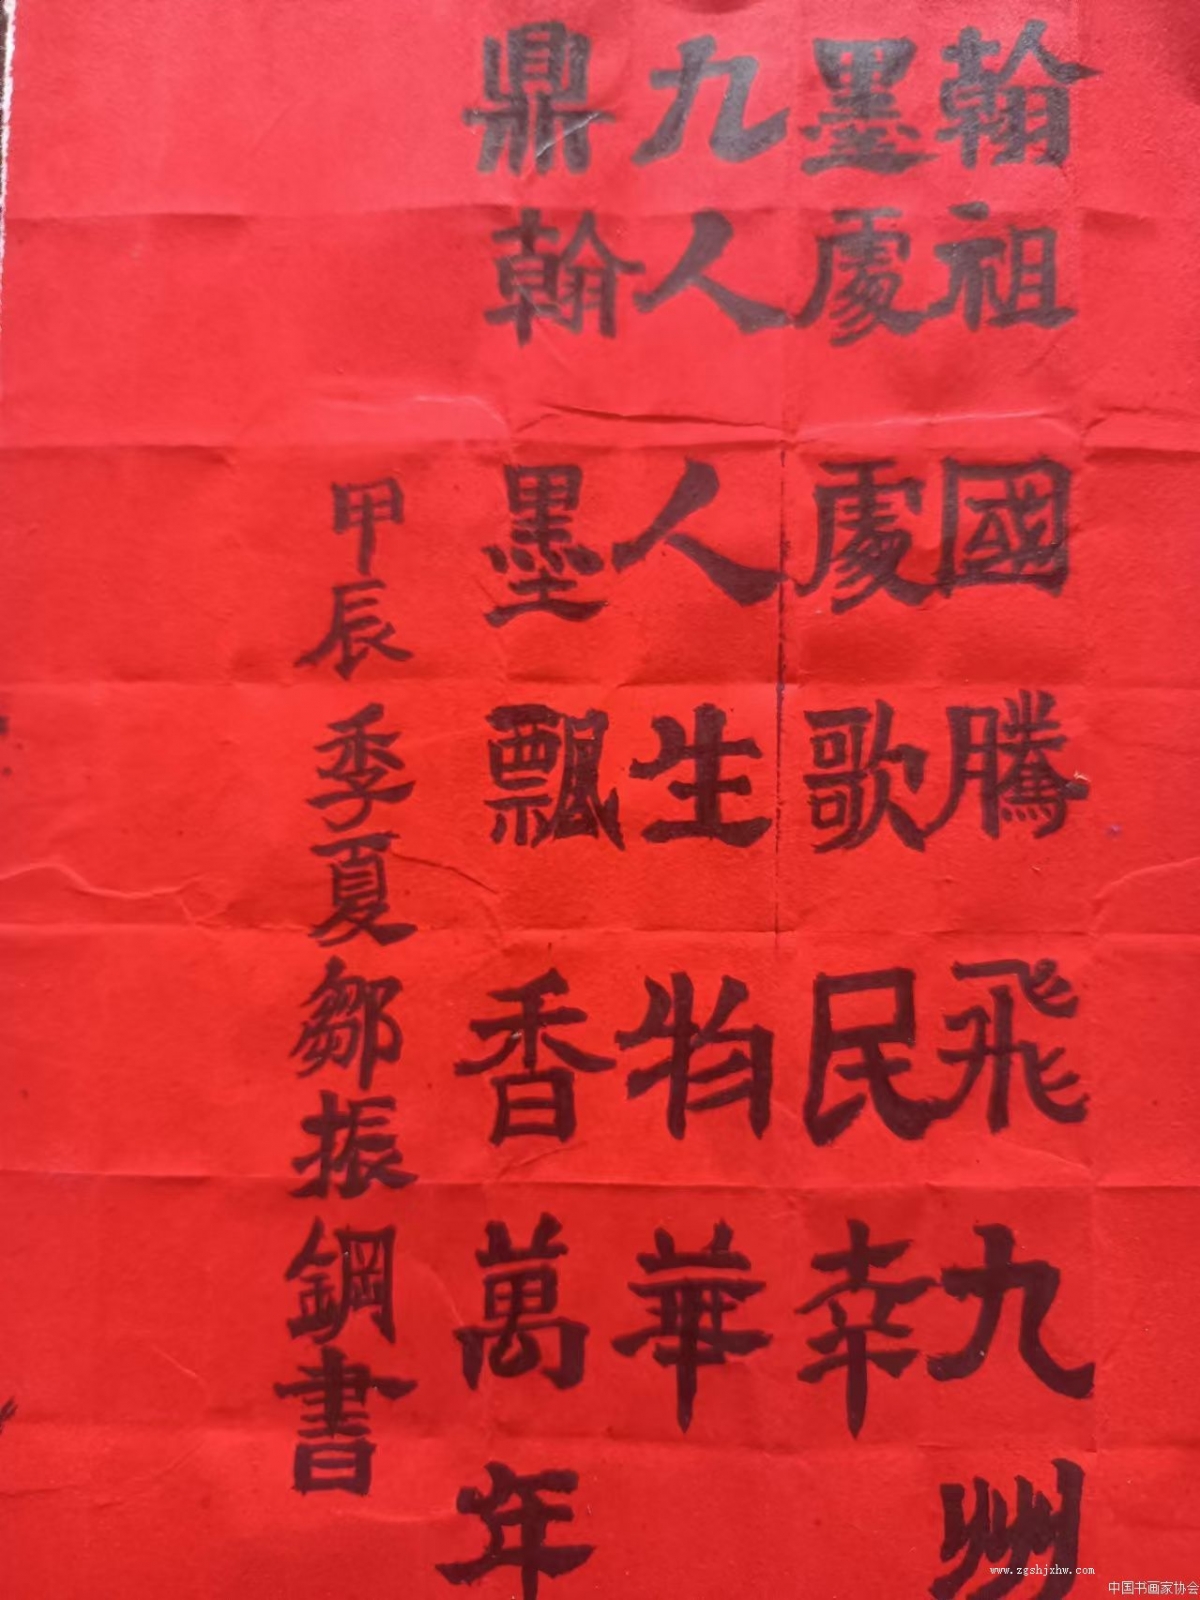 翰祖國騰飛九州
墨處處歌民幸
九人人生物華
鼎翰墨飄香萬年
甲辰季夏鄒振鋼書
www.zgshjxhw.com
中国书画家协会